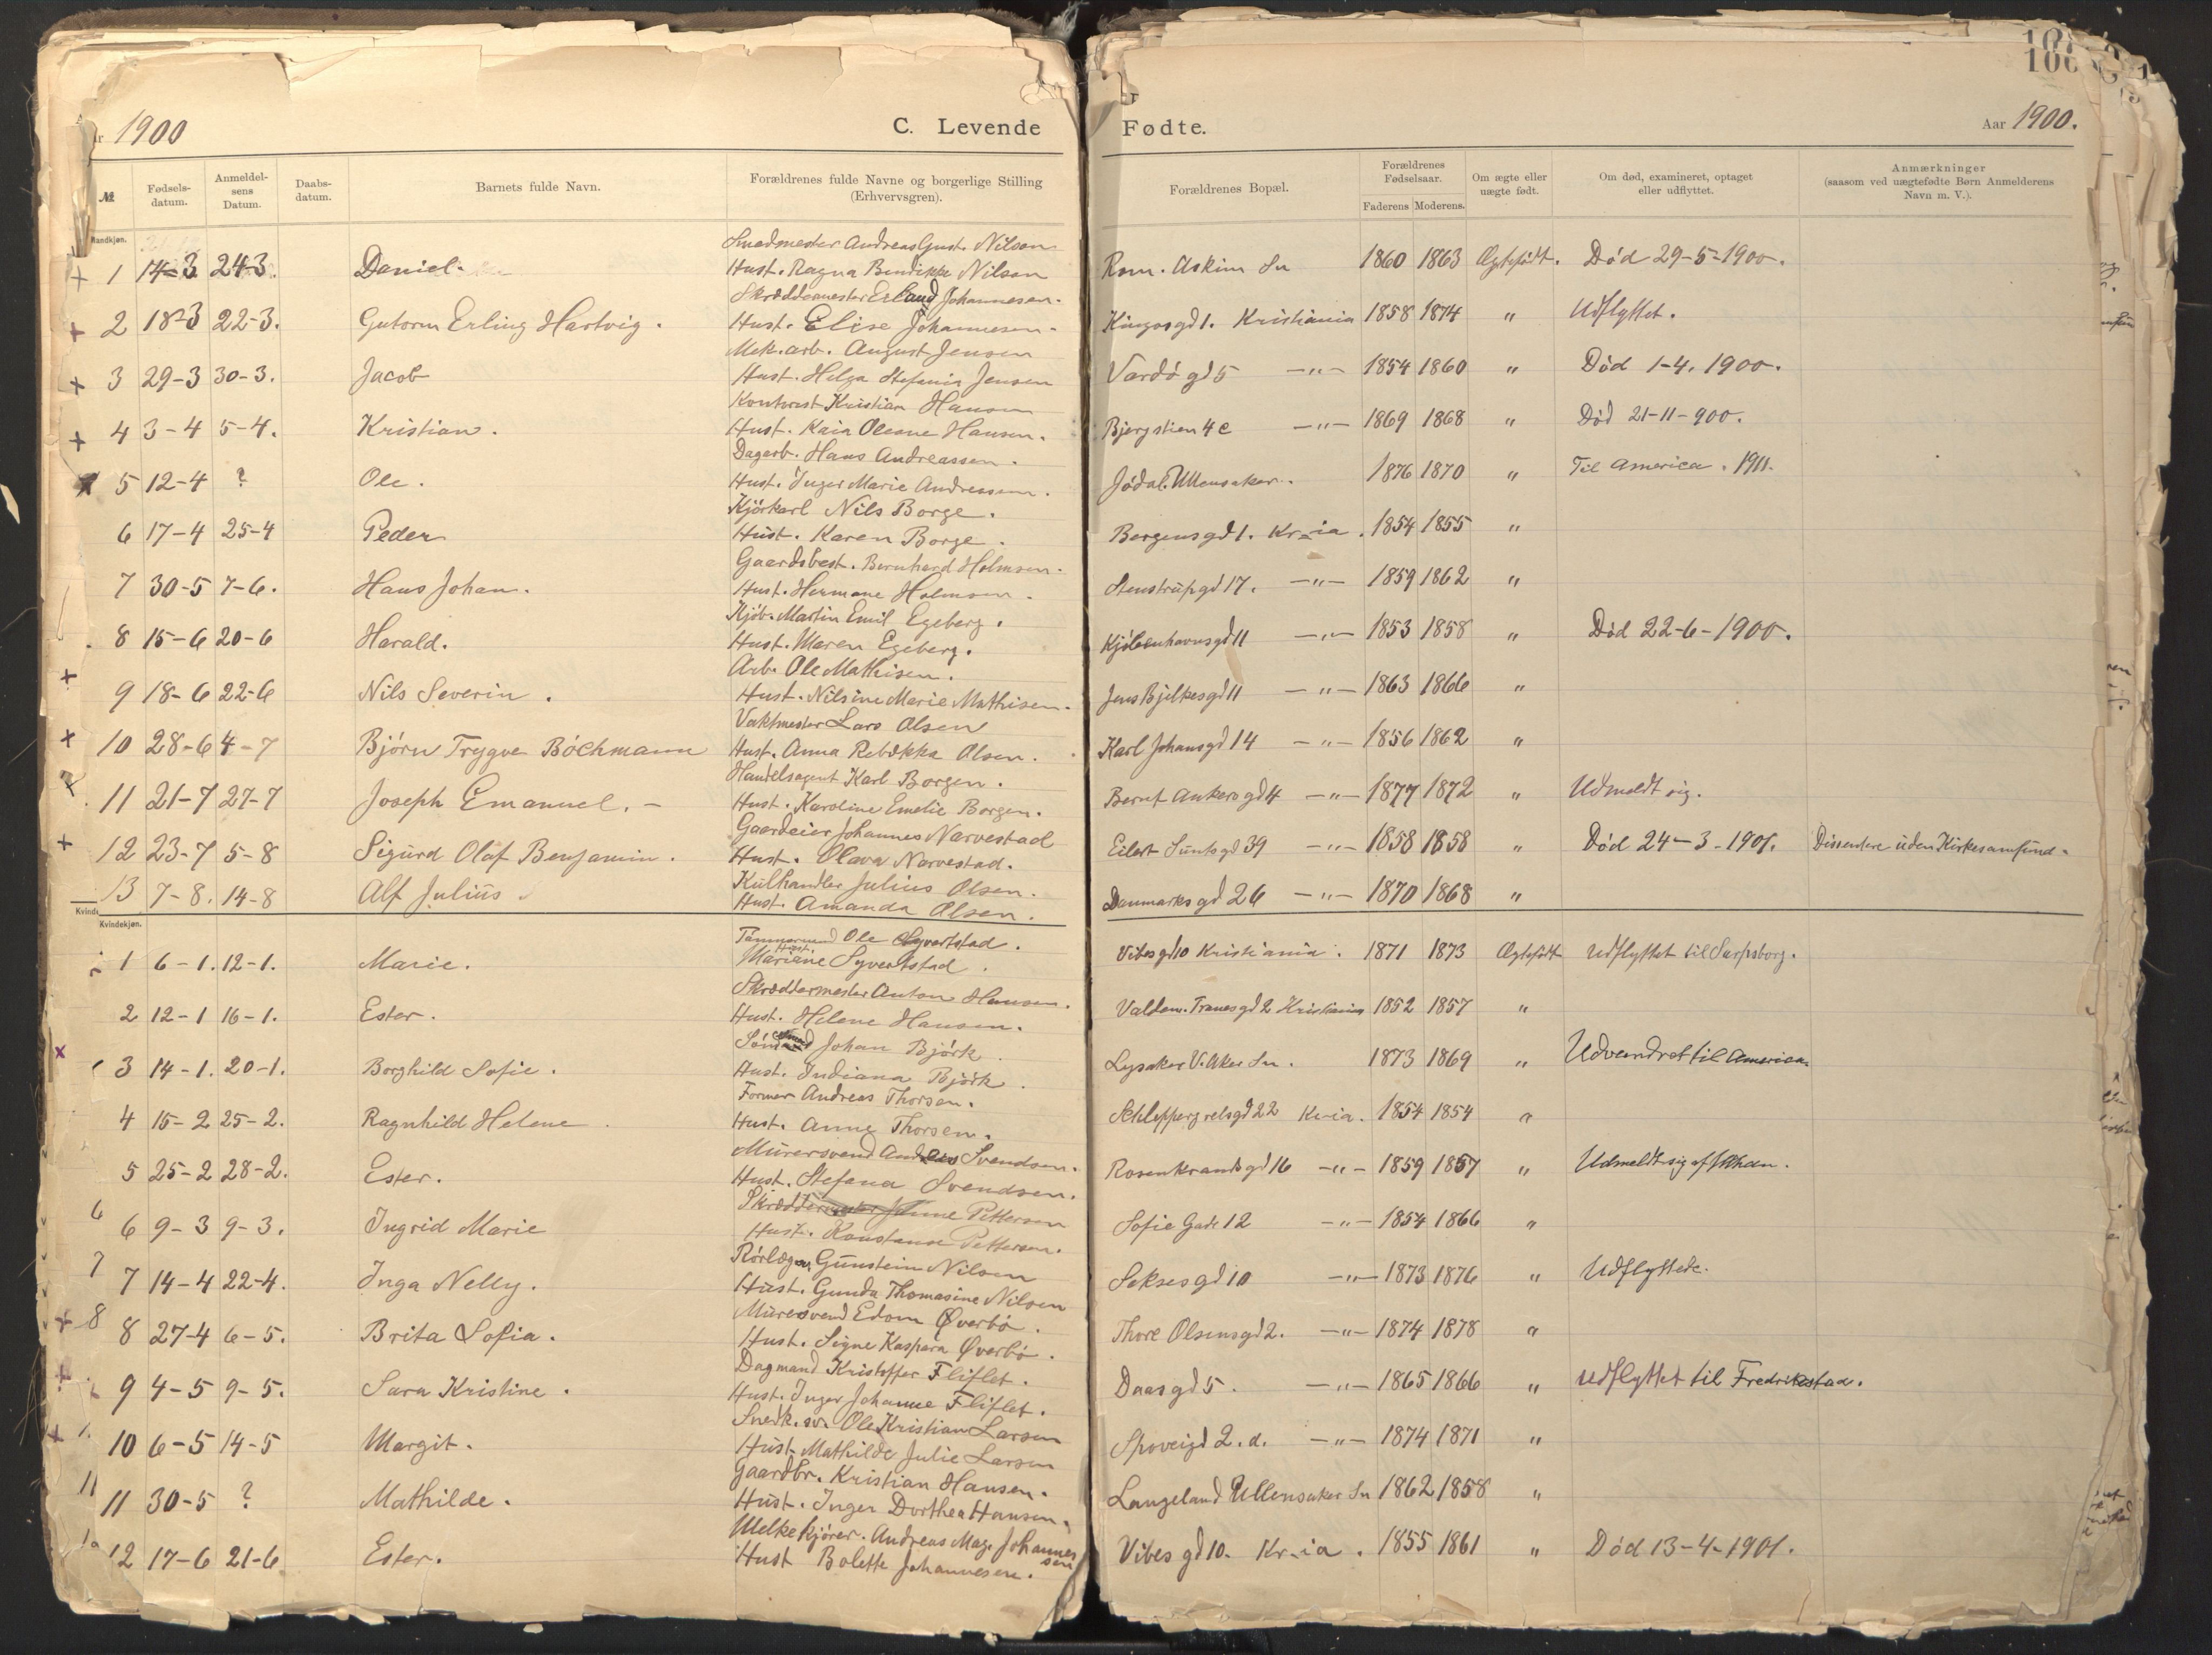 1900 C. Levende Fødte. Aar 1900.
№ Fødsels-datum. Anmeldel-sens Datum. Daabs-datum. Barnets fulde Navn. Forældrenes fulde Navne og borgerlige Stilling (Erhvervsgren). Forældrenes Bopæl. Forældrenes Fødselsaar. Faderens Moderens. Om ægte eller uægte født. Om død, examineret, optaget eller udflyttet. Anmærkninger (saasom ved uægtefødte Børn Anmelderens Navn m. V.).
Mandkjøn.
Smedmester Andreas Gust. Nilsen
+ 1 14-3 24-3. Daniel. Hust. Ragna Bendikke Nilsen Rom. Askim Sn 1860 1863 Ægtefødt. Død 29-5-1900.
Skræddermester Erland Johannesen.
+ 2 18-3 22-3. Gutorm Erling Hartvig. Hust. Elise Johannesen. Kingosgd 1. Kristiania 1858 1874 " Udflyttet.
Mek. arb. August Jensen
+ 3 29-3 30-3. Jacob Hust. Helga Stefania Jensen Vardøgd 5 -"- 1854 1860 " Død 1-4. 1900.
Kontorist Kristian Hansen
+ 4 3-4 5-4. Kristian. Hust. Kaia Oleane Hansen. Bjergstien 4 c -"- 1869 1868 " Død 21-11-900.
Dagarb. Hans Andreassen.
5 12-4 ? Ole. Hust. Inger Marie Andreassen. Jødal. Ullensaker. 1876 1870 " Til America. 1911.
Kjørkarl Nils Borge.
6 17-4 25-4 Peder Hust. Karen Borge. Bergensgd 1. Kr-ia. 1854 1855 "
Gaardsbest. Bernhard Holmsen.
7 30-5 7-6. Hans Johan. Hust. Hermane Holmsen. Stenstrupgd 17. -"- 1859 1862 "
Kjøb. Martin Emil Egeberg.
8 15-6 20-6 Harald. Hust. Maren Egeberg. Kjøbenhavnsgd 11 -"- 1853 1858 " Død 22-6-1900.
Arb. Ole Mathisen.
+ 9 18-6 22-6 Nils Severin. Hust. Nilsine Marie Mathisen. Jens Bjelkesgd 11 -"- 1863 1866 "
Vaktmester Lars Olsen
x 10 28-6 4-7 Bjørn Trygve Bøchmann Hust. Anna Rebekka Olsen. Karl Johansgd 14 -"- 1856 1862 "
Handelsagent Karl Borgen.
x 11 21-7 27-7 Joseph Emanuel. - Hust. Karoline Emelie Borgen. Bernt Ankersgd 4 -"- 1877 1872 " Udmeldt sig.
Gaardeier Johannes Narvestad
+ 12 23-7 5-8 Sigurd Olaf Benjamin. Hust. Olava Narvestad. Eilert Suntsgd 39 -"- 1858 1858 " Død 24-3-1901. Dissentere uden Kirkesamfund.
Kulhandler Julius Olsen.
13 7-8. 14-8 Alf Julius Hust. Amanda Olsen. Danmarksgd 26 -"- 1870 1868 "
Kvindekjøn.
Tømmermand Ole Syvertstad.
1 6-1. 12-1. Marie. Hust. Mariane Syvertstad. Vibesgd 10 Kristiania. 1871 1873 Ægtefødt Udflyttet til Sarpsborg.
Skræddermester Anton Hansen.
2 12-1 16-1. Ester. Hust. Helene Hansen. Valdem. Tranesgd 2 Kristiania 1852 1857 "
Johan Bjørk.
x 3 14-1. 20-1. Borghild Sofie. Hust. Indiana Bjørk. Lysaker V. Aker Sn. 1873 1869 " Udvandret til America.
Former Andreas Thorsen.
4 15-2 25-2. Ragnhild Helene. Hust. Anne Thorsen. Schleppegrelsgd 22 Kr-ia. 1854 1854 "
Murersvend Andreas Svendsen.
5 25-2 28-2. Ester. Hust. Stefena Svendsen. Rosenkrandsgd 16 -"- 1859 1857 " Udmeldt sig af
Pettersen
6 6 9-3 9-3. Ingrid Marie Hust. Konstanse Pettersen. Sofie Gade 12 -"- 1854 1866 "
Rørlægger Gunstein Nilsen
7 7 14-4 22-4. Inga Nelly. Hust. Gunda Thomasine Nilsen Seksesgd 10 -"- 1873 1876 " Udflyttede.
Murersvend Edom Øverbø.
+ 8 8 27-4 6-5. Brita Sofia. Hust. Signe Kaspara Øverbø. Thore Olsensgd 2. -"- 1874 1878 "
Dagmand Kristoffer Fliflet.
+ 9 4-5 9-5. Sara Kristine. Hust. Inger Johanne Fliflet. Daasgd 5. -"- 1865 1866 " Udflyttet til Fredrikstad.
Snedk. sv. Ole Kristian Larsen
+ 10 6-5 14-5 Margit. Hust. Mathilde Julie Larsen Spoveigd 2. d. -"- 1874 1871 "
Gaardbr. Kristian Hansen.
11 11 30-5 ? Mathilde. Hust. Inger Dorthea Hansen. Langeland Ullensaker Sn 1862 1858 "
Melkekjører. Andreas Mag. Johannessen
12 17-6 21-6 Ester. Hust Bolette Johannesen. Vibesgd 10. Kr-ia. 1855 1861 " Død 13-4-1901.